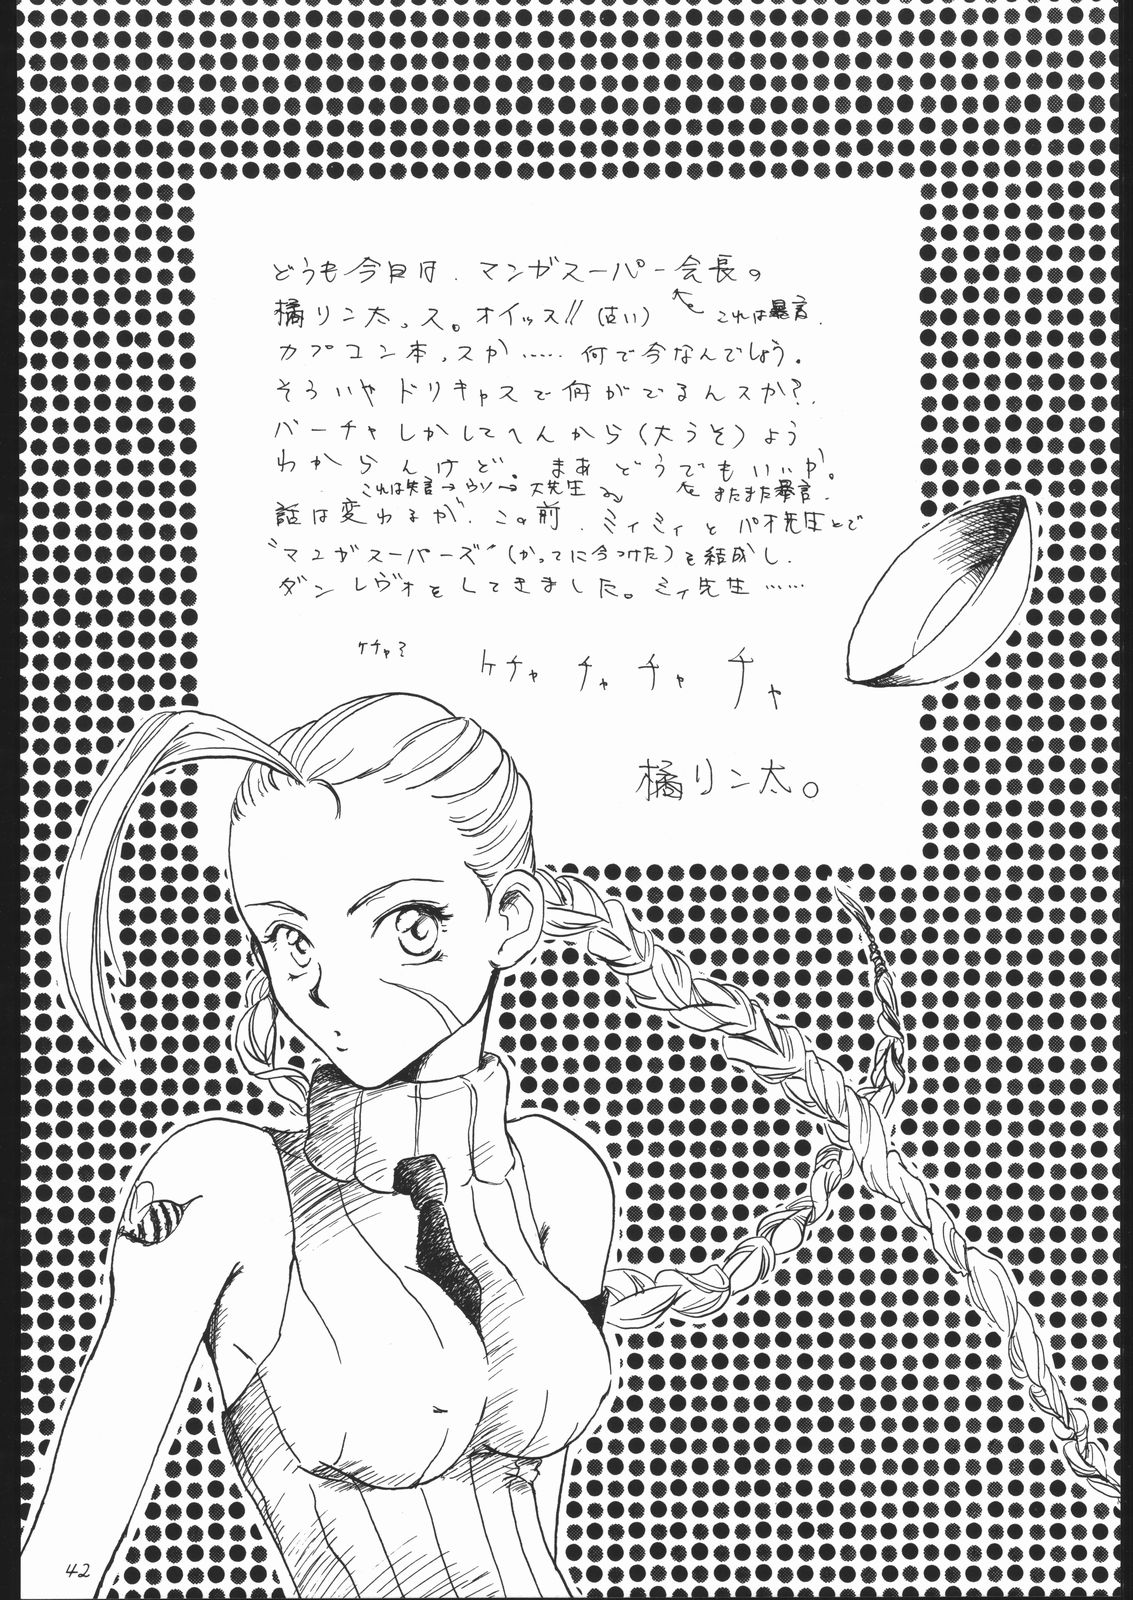 どうも今日は、マンガスーパー会長の
橘リン太っス。オイッス!!(古い)
これは暴言。
カプコン本っスか……何で今なんでしょう。
そういやドリキャスで何がでるんスか?
バーチャしかしてへんから(大うそ)よう
わからんけど。まあどうでもいいか。
これは失言→ウソ→大先生
またまた暴言。
話は変わるが、この前、ミィミィとパオ先生とで
"マンガスーパーズ"(かってに今つけた)を結成し、
ダンレヴォをしてきました。ミィ先生……
ケチャ?
ケチャ チャ チャ チャ
橘リン太。
42